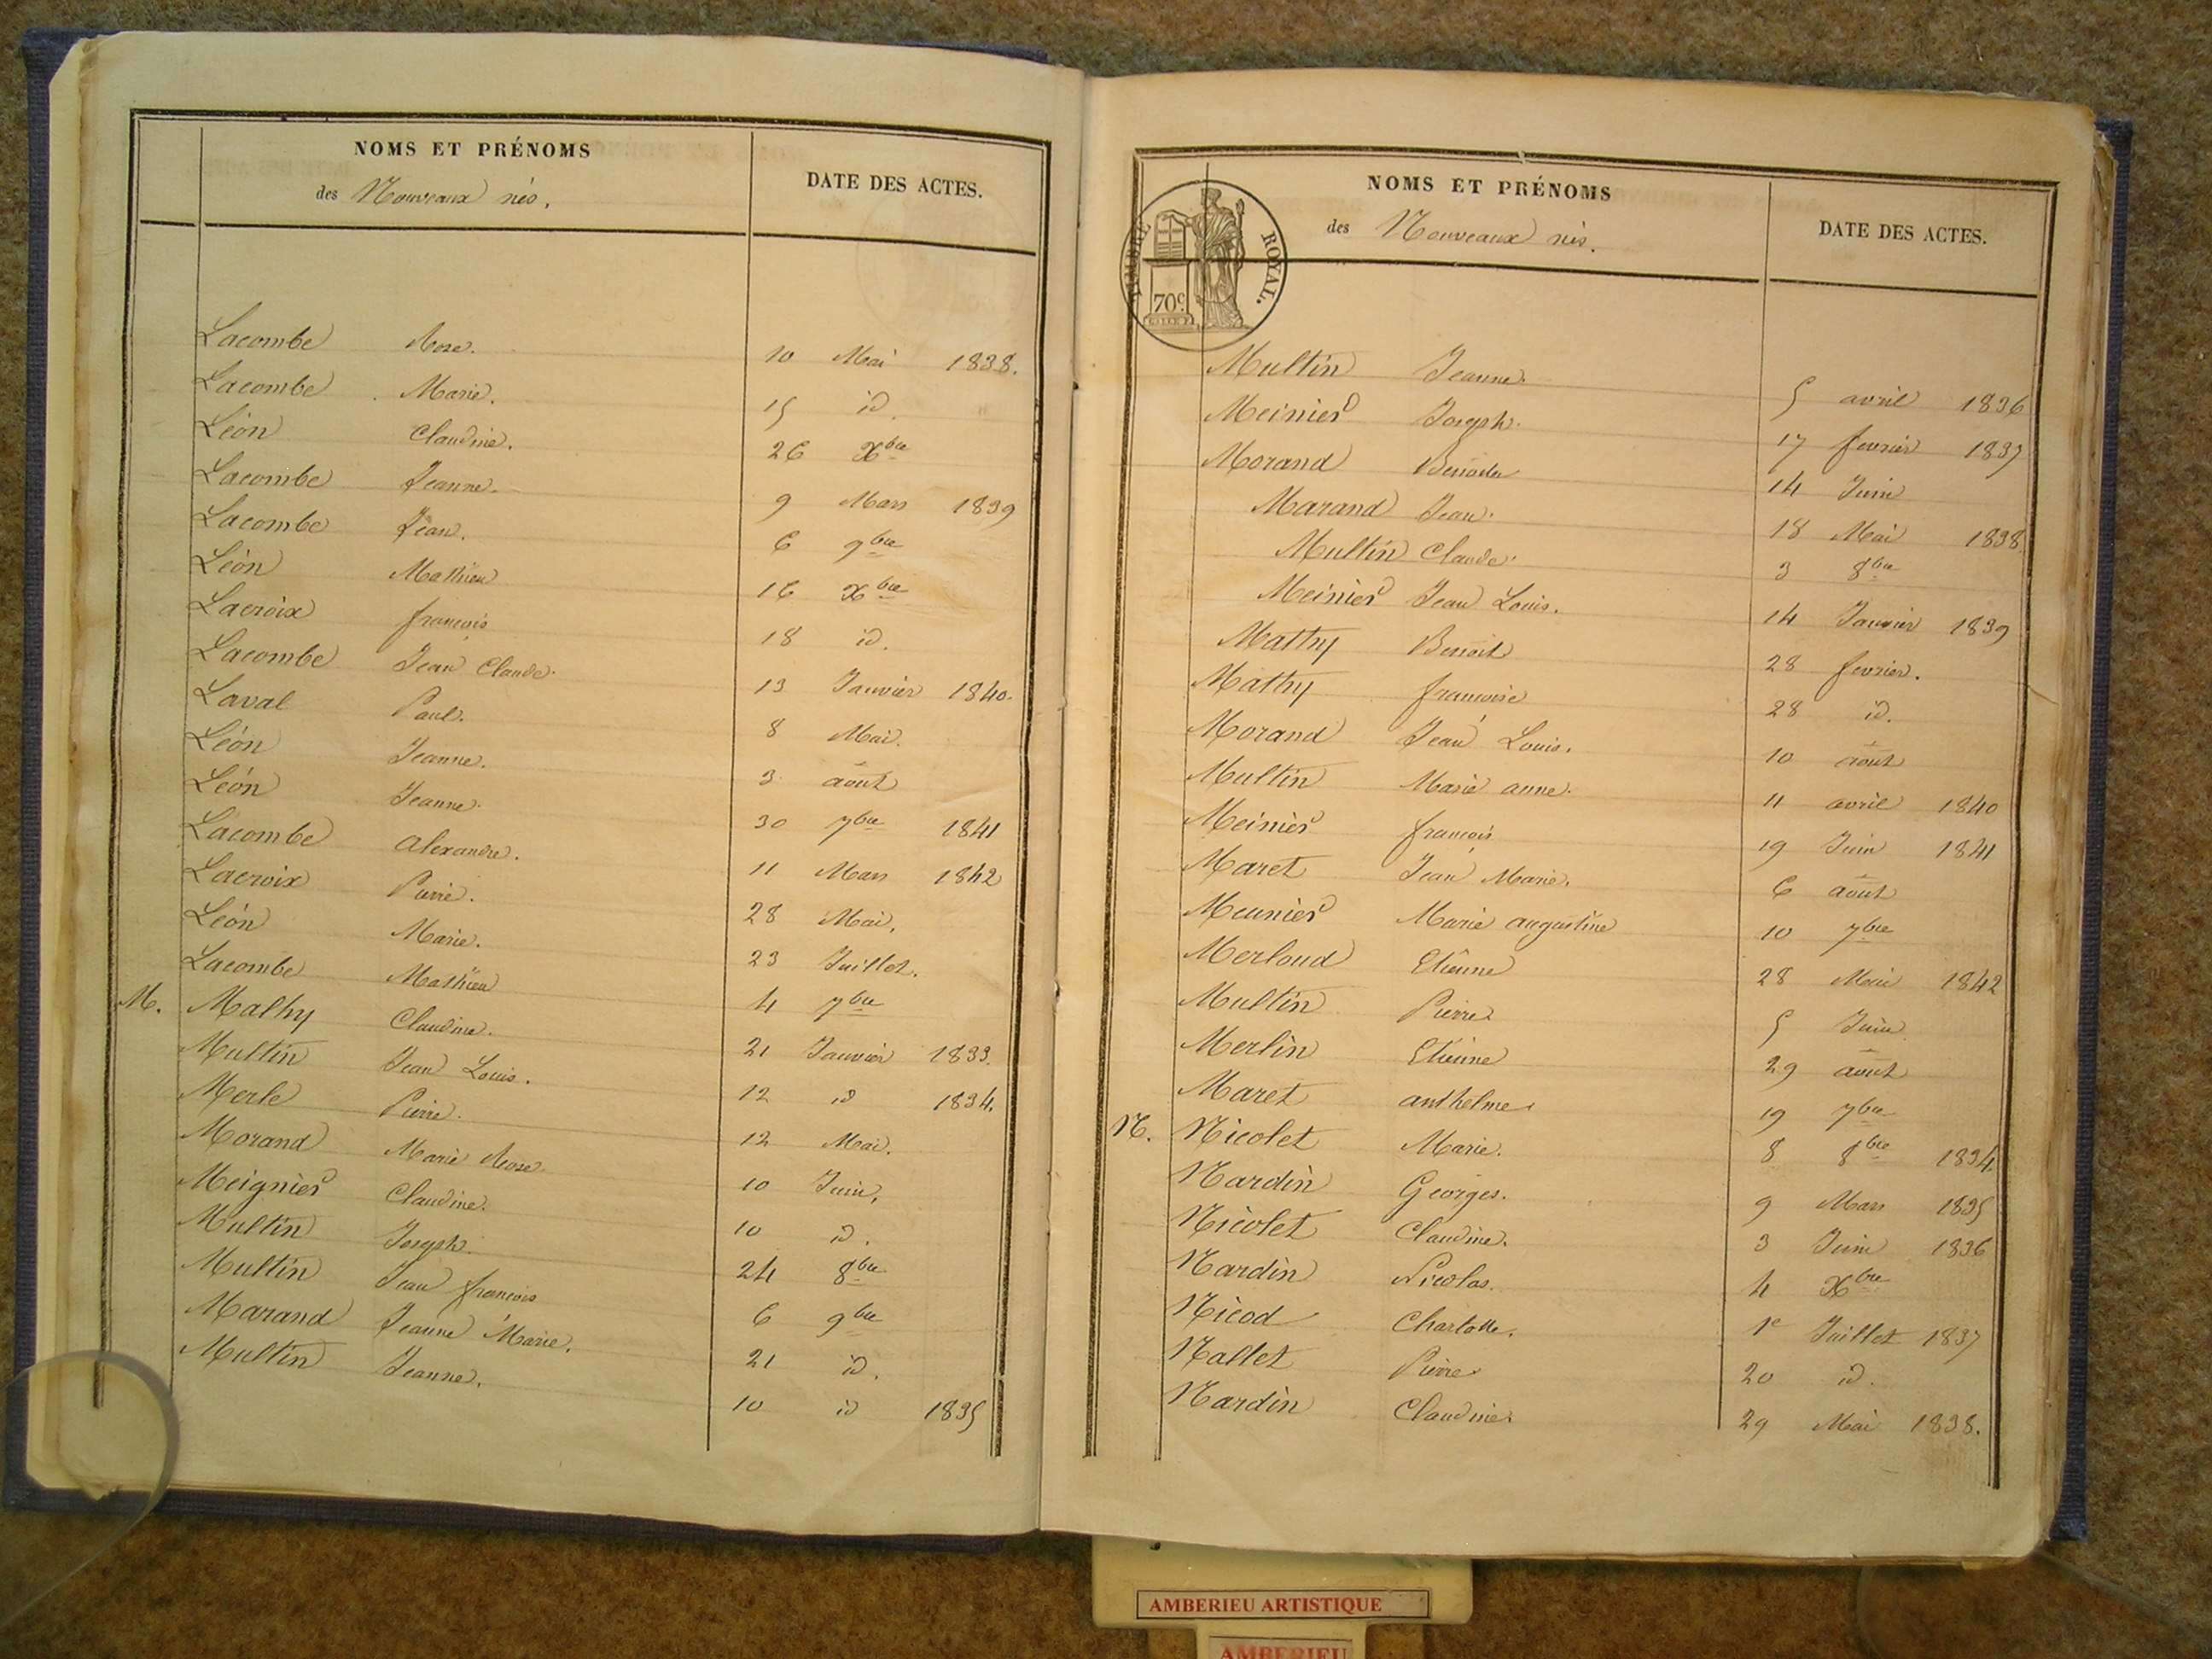 NOMS ET PRÉNOMS
des Nouveaux nés.
DATE DES ACTES.
Lacombe Rose. 10 Mai 1838.
Lacombe Marie. 15 id.
Léon Claudine. 26 Xbre
Lacombe Jeanne. 9 Mars 1839
Lacombe Jean. 6 9bre
Léon Mathieu 16 Xbre
Lacroix françois 18 id.
Lacombe Jean Claude. 13 Janvier 1840.
Laval Paul. 8 Mai.
Léon Jeanne. 3 août
Léon Jeanne. 30 7bre 1841
Lacombe Alexandre. 11 Mars 1842
Lacroix Pierre. 28 Mai.
Léon Marie. 23 Juillet.
Lacombe Mathieu 4 7bre
M. Mathy Claudine. 21 Janvier 1833.
Multin Jean Louis. 12 id 1834.
Merle Pierre. 12 Mai.
Morand Marie Rose 10 Juin.
Meignier Claudine. 10 id.
Multin Joseph. 24 8bre
Multin Jean françois 6 9bre
Marand Jeanne Marie. 21 id.
Multin Jeanne. 10 id 1835
NOMS ET PRÉNOMS
des Nouveaux nés.
DATE DES ACTES.
TIMBRE ROYAL.
70c.
Multin Jeanne. 5 avril 1836
Meinier Joseph. 17 fevrier 1837
Morand Benoite 14 Juin
Marand Jean. 18 Mai 1838.
Multin Claude. 3 8bre
Meinier Jean Louis. 14 Janvier 1839
Mathy Benoit 28 fevrier.
Mathy françoise 28 id.
Morand Jean Louis. 10 août
Multin Marie anne. 11 avril 1840
Meinier françois 19 Juin 1841
Maret Jean Marie. 6 août
Meunier Marie augustine 10 7bre
Merloud Etienne 28 Mai 1842
Multin Pierre 5 Juin
Merlin Etienne 29 août
Maret anthelme 19 7bre
N. Nicolet Marie. 8 8bre 1834.
Nardin Georges. 9 Mars 1835
Nicolet Claudine. 3 Juin 1836
Nardin Nicolas. 4 Xbre
Nicod Charlotte. 1e Juillet 1837
Nallet Pierre 20 id.
Nardin Claudine. 29 Mai 1838.
AMBERIEU ARTISTIQUE
AMBERIEU